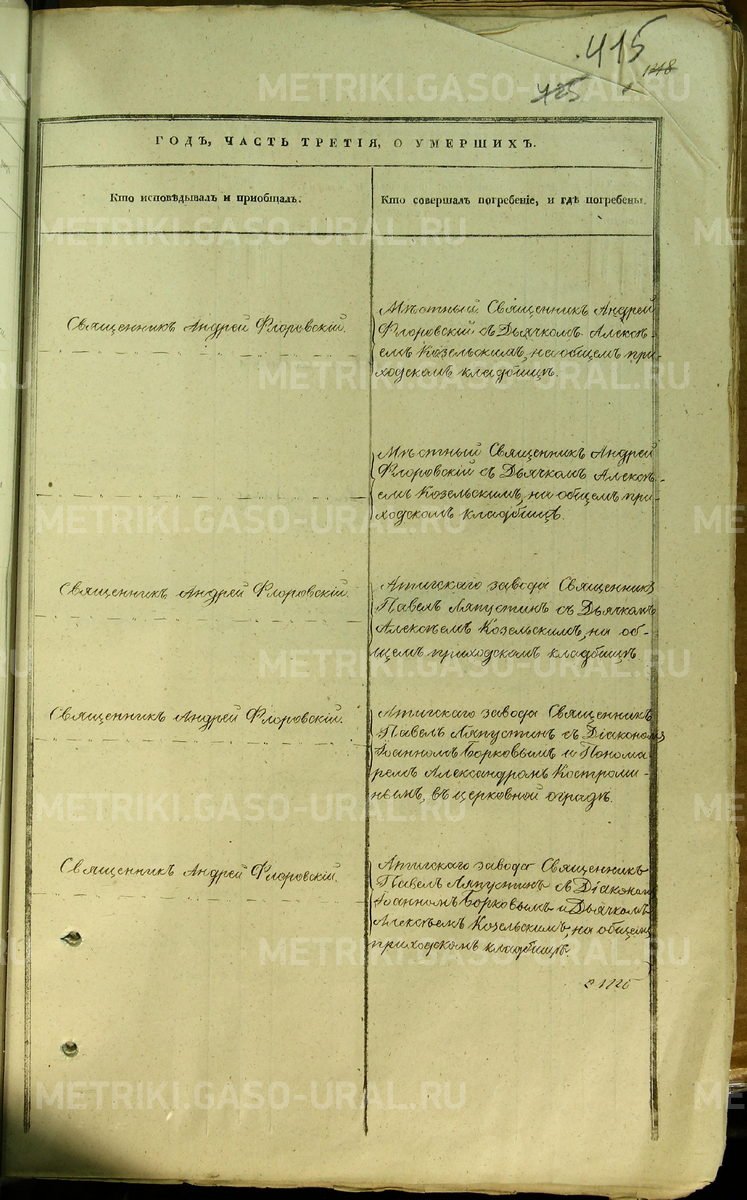 415
425
1248
ГОДЪ, ЧАСТЬ ТРЕТІЯ, О УМЕРШИХЪ.
Кто исповѣдывалъ и приобщалъ.
Кто совершалъ погребеніе, и гдѣ погребены.
Священникъ Андрей Флоровскій.
Мѣстный Священникъ Андрей
Флоровскій съ Дьячкомъ Алексѣ-
емъ Козельскимъ, на общемъ при-
ходскомъ кладбищѣ.
Мѣстный Священникъ Андрей
Флоровскій съ Дьячкомъ Алексѣ-
емъ Козельскимъ, на общемъ при-
ходскомъ кладбищѣ.
Священникъ Андрей Флоровскій.
Атигскаго завода Священникъ
Павелъ Ляпустинъ съ Дьячкомъ
Алексѣемъ Козельскимъ, на об-
щемъ приходскомъ кладбищѣ
Священникъ Андрей Флоровскій.
Атигскаго завода Священникъ
Павелъ Ляпустинъ съ Діакономъ
Іоанномъ Борковымъ и Понома
ремъ Александромъ Костроми-
нымъ, въ церковной оградѣ.
Священникъ Андрей Флоровскій.
Атигскаго завода Священникъ
Павелъ Ляпустинъ съ Діакономъ
Іоанномъ Борковымъ и Дьячкомъ
Алексѣемъ Козельскимъ, на общемъ
приходскомъ кладбищѣ.
METRIKI.GASO-URAL.RU